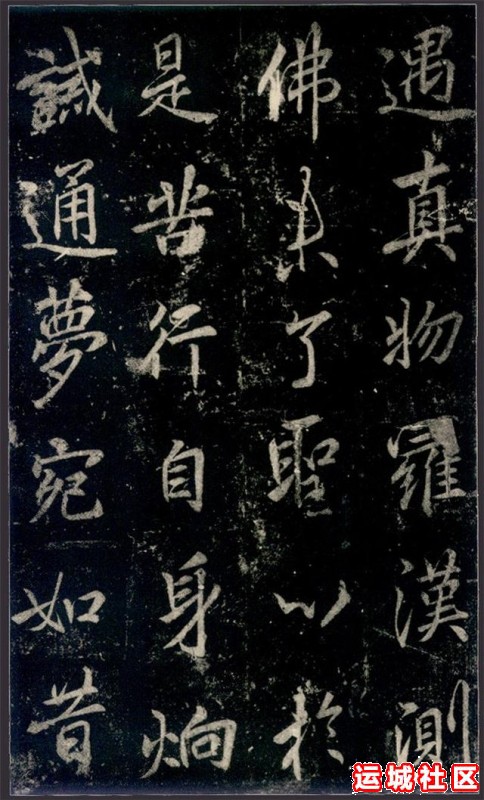 遇真物羅漢測
佛了聖以於
是苦行自身炯
誠通夢宛如昔
运城社区